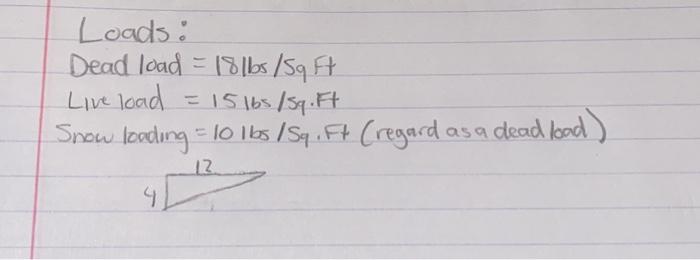 Loads:
Dead load = 18 lbs/Sq Ft
Live load = 15 lbs/Sq.Ft
Snow loading = 10 lbs/Sq.Ft (regard as a dead load)
12
4